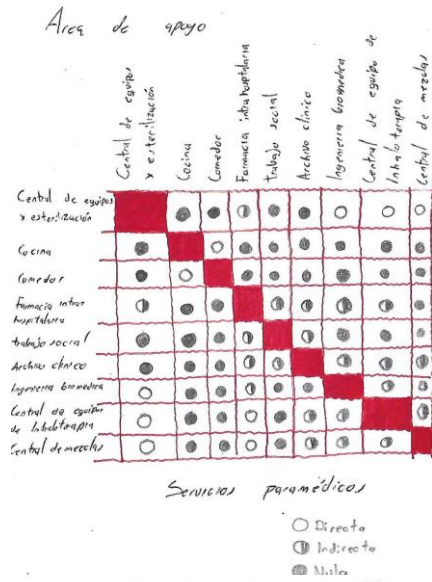 Area de apoyo
Central de equipos
y esterilización
Cocina
Comedor
Farmacia intrahospitalaria
trabajo social
Archivo clínico
Ingenieria biomedica
Central de equipo de
Inhaloterapia
Central de mezclas
Central de equipos
y esterilización
Cocina
Comedor
Farmacia intra
hospitalaria
trabajo social
Archivo clínico
Ingenieria biomedica
Central de equipo
de Inhaloterapia
Central de mezclas
Servicios paramédicos
Directa
Indirecta
Nula